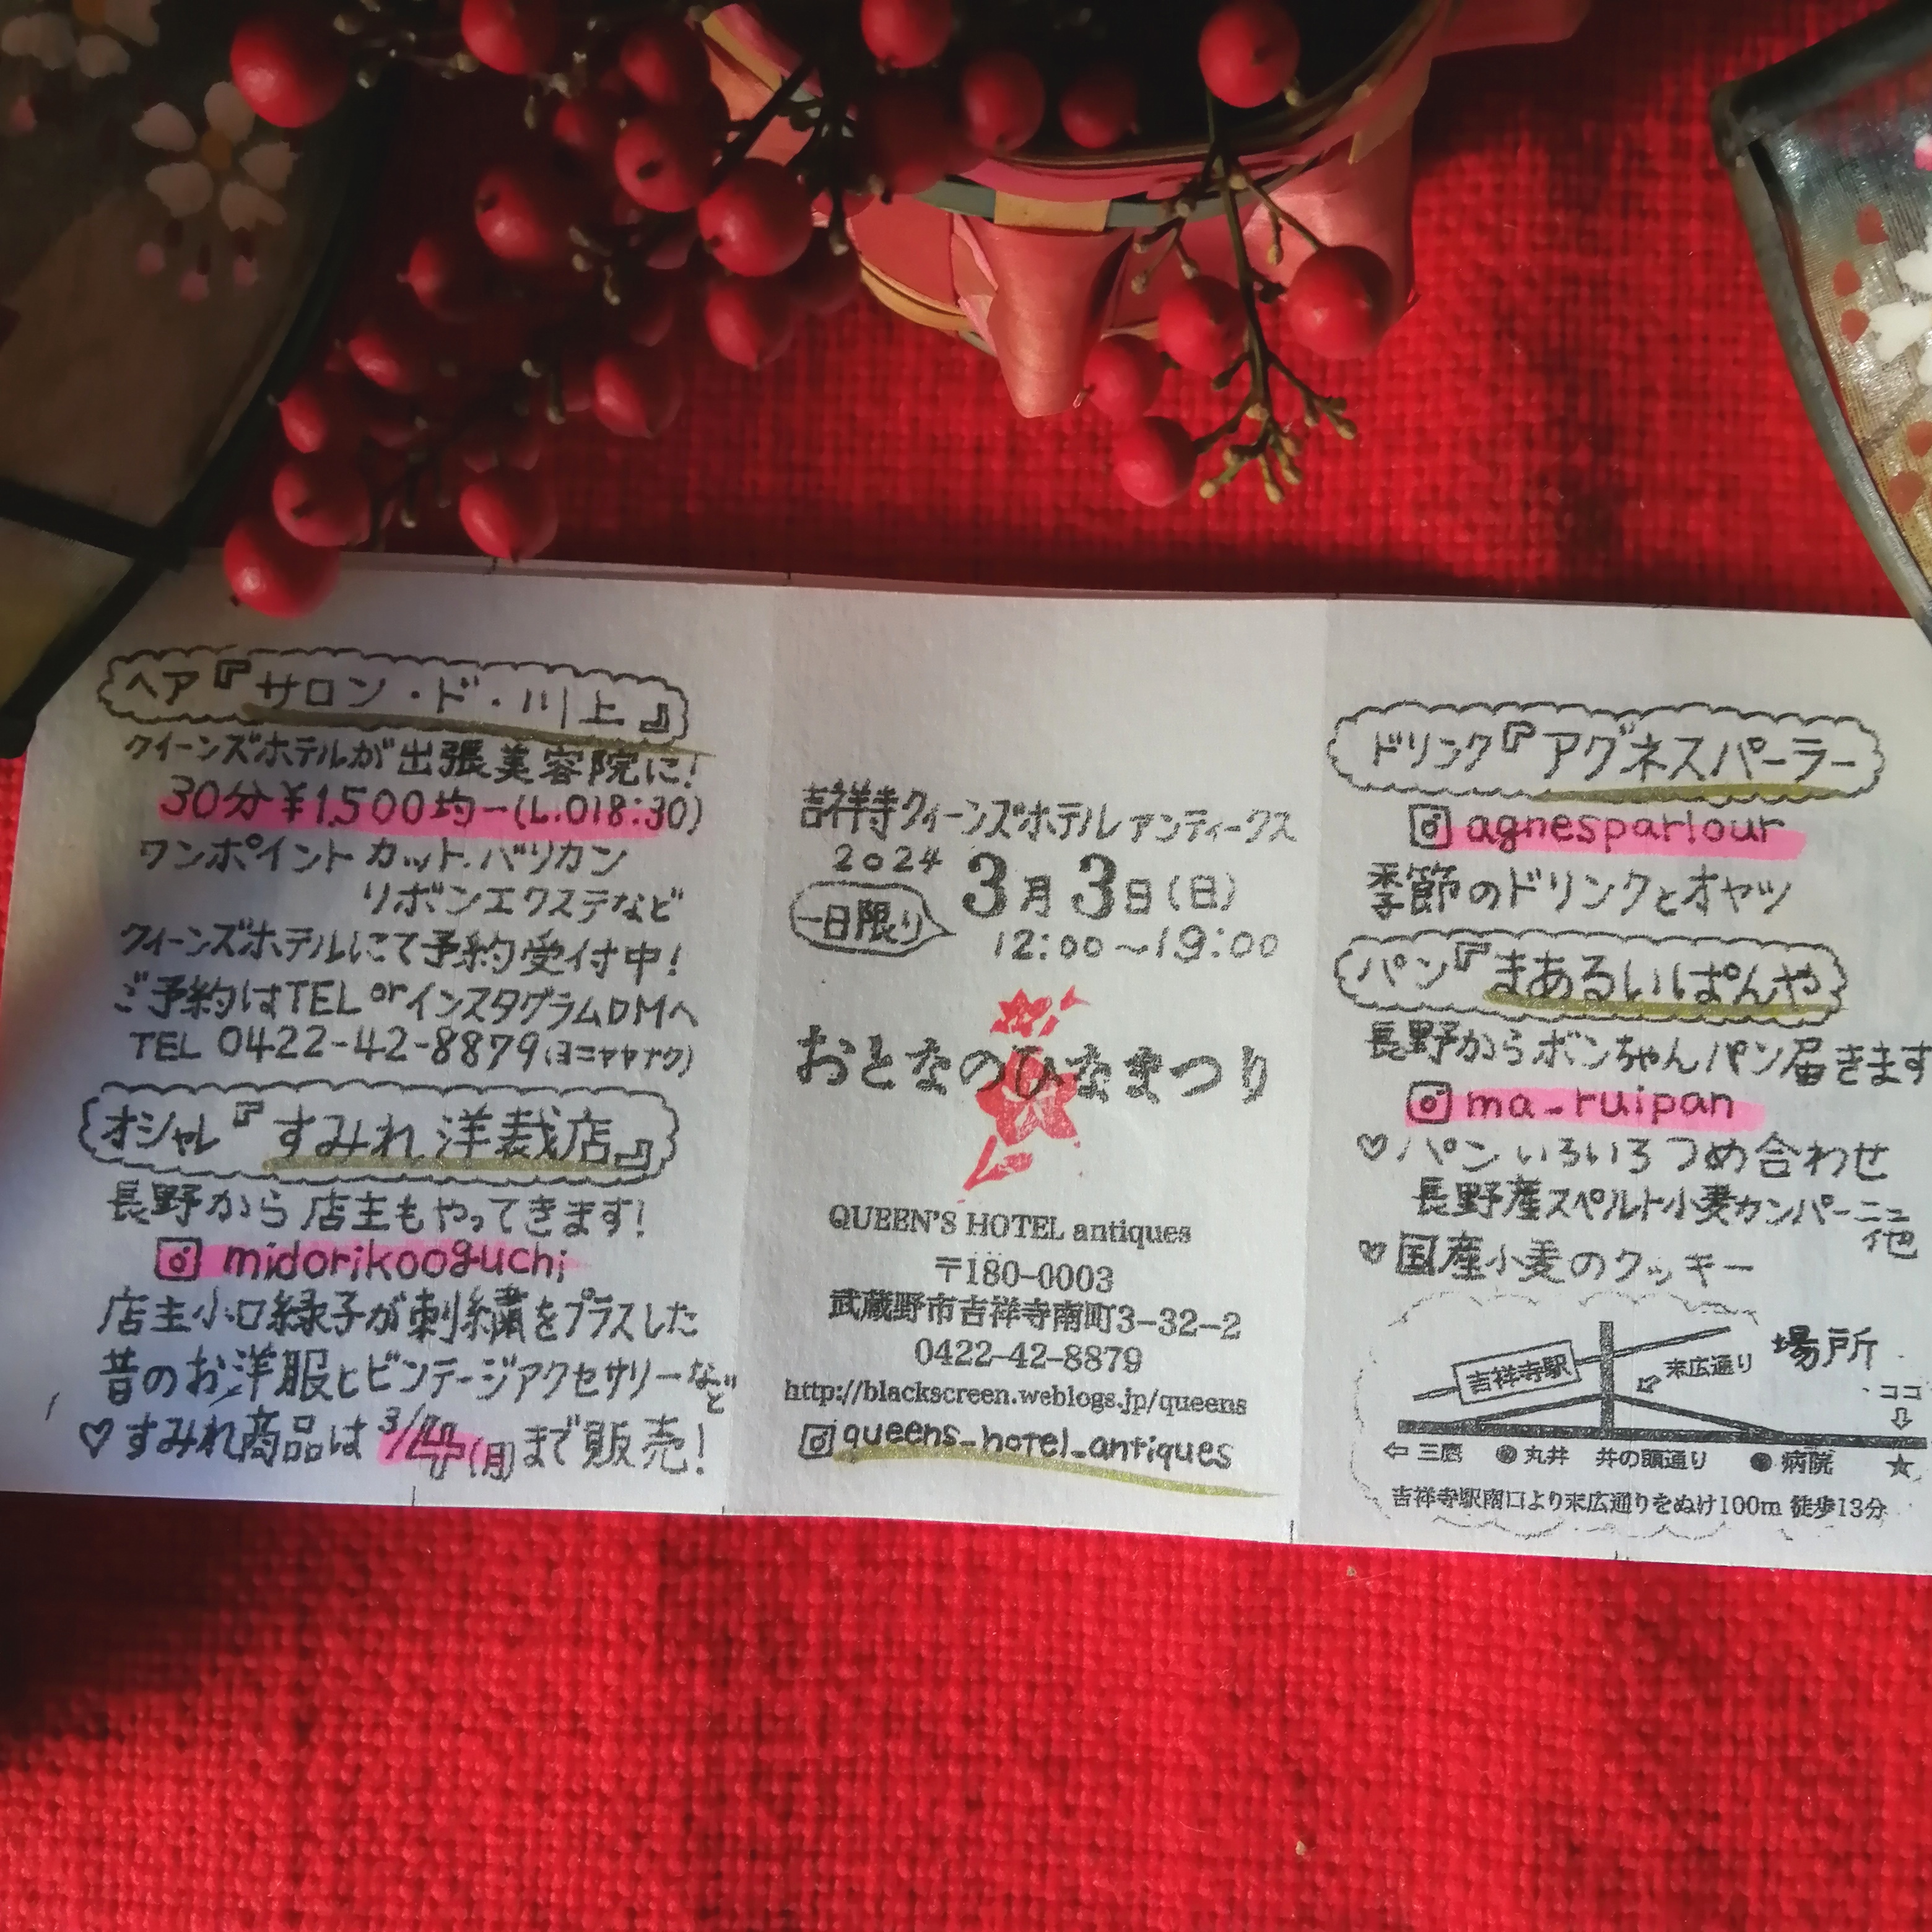 ヘア『サロン・ド・川上』
クイーンズホテルが出張美容院に!
30分¥1,500均一(L.O18:30)
ワンポイントカット.バリカン
リボンエクステなど
クィーンズホテルにて予約受付中!
ご予約はTEL orインスタグラムDMへ
TEL 0422-42-8879(ヨニヤヤナク)
オシャレ『すみれ洋裁店』
長野から店主もやってきます!
midorikooguchi
店主小口緑子が刺繍をプラスした
昔のお洋服とビンテージアクセサリーなど
♡すみれ商品は3/4(月)まで販売!
吉祥寺クィーンズホテルアンティークス
2024
3月3日(日)
一日限り
12:00~19:00
おとなのひなまつり
QUEEN'S HOTEL antiques
〒180-0003
武蔵野市吉祥寺南町3-32-2
0422-42-8879
http://blackscreen.weblogs.jp/queens
queens_hotel_antiques
ドリンク『アグネスパーラー
agnesparlour
季節のドリンクとオヤツ
パン『まあるいぱんや
長野からボンちゃんパン届きます
ma_ruipan
♡パンいろいろつめ合わせ
長野産スペルト小麦カンパーニュ他
♡国産小麦のクッキー
場所
吉祥寺駅
末広通り
ココ
⇦三鷹 丸井 井の頭通り 病院 ★
吉祥寺駅南口より末広通りをぬけ100m 徒歩13分